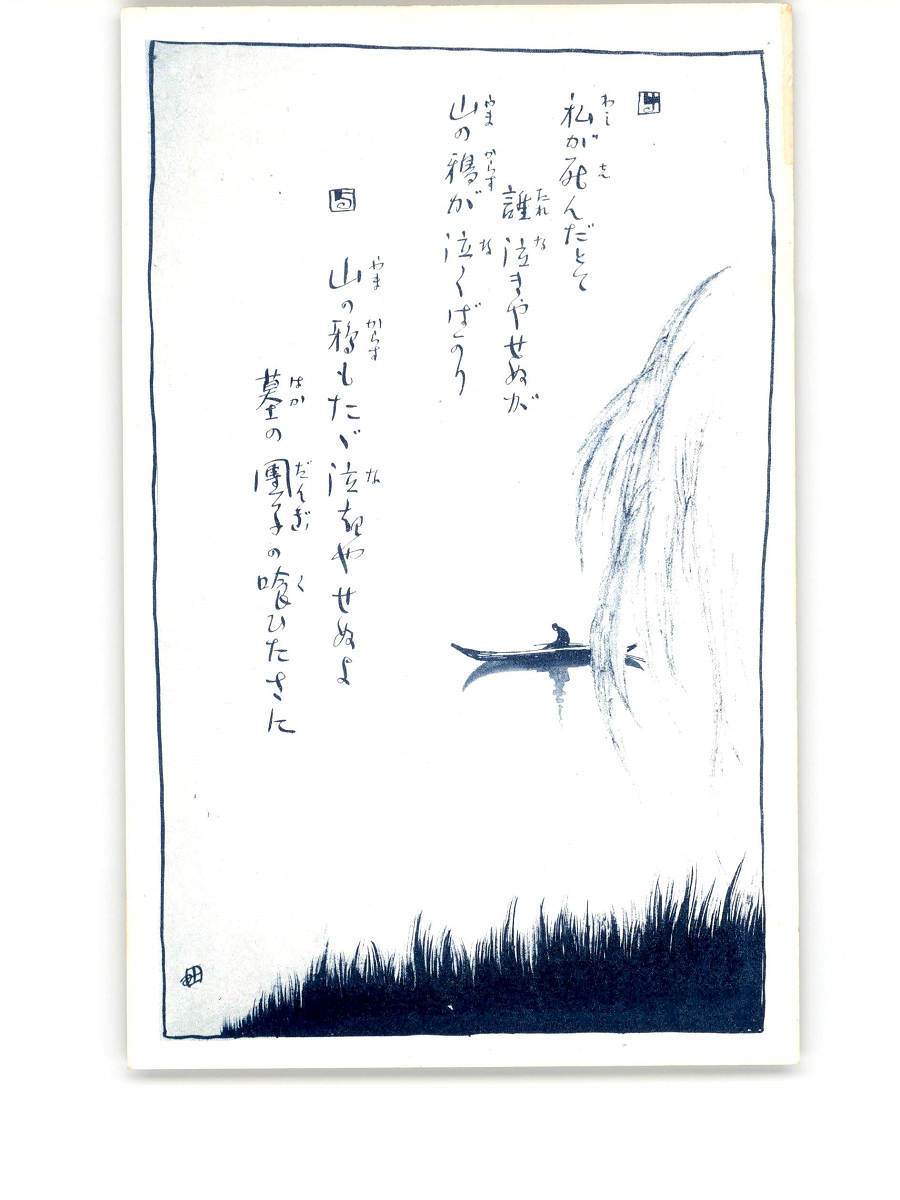 私が死んだとて
誰泣きやせぬが
山の鴉が泣くばかり
山の鴉もたゞ泣きやせぬよ
墓の團子の喰ひたさに